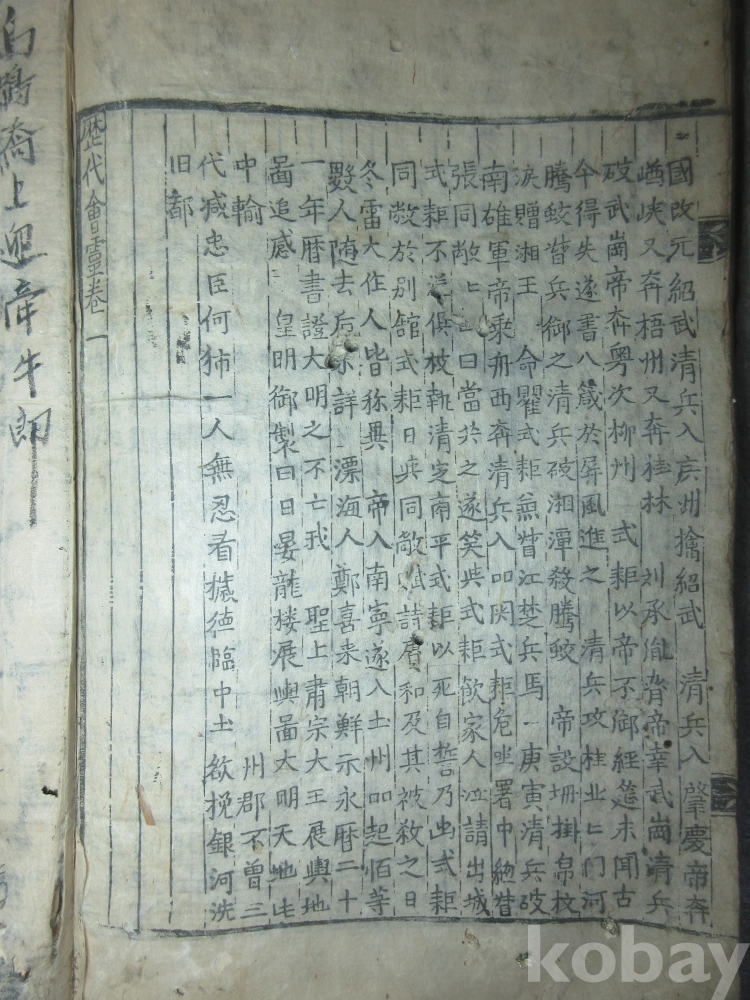 國改元紹武清兵入庆州擒紹武 清兵入肇慶帝奔
峽又奔梧州又奔桂林 刘承胤脅帝幸武崗清兵
破武崗帝奔粤次柳州 式耟以帝不御經筵未聞古
今得失遂書八箴於屏風進之 清兵攻桂北七門河
騰蛟督兵御之清兵破湘潭殺騰蛟 帝設壇掛帛枚
淚贈湘王 命瞿式耟兼督江楚兵馬一庚寅清兵破
南雄軍帝乗舟西奔清兵入四関式耟危坐署中総督
張同敞 曰當共之遂笑與式耟飲家人泣請出城
式耟不 俱被執清定南平式耟以死自誓乃幽式耟
同敞於別舘式耟日與同敞賦詩賡和及其被殺之日
冬雷大作人皆称異 帝入南寧遂入土州 起佰等
數人随去后 詳 漂海人鄭喜来朝鮮示永曆二十
一年曆書證大明之不亡我 聖上肅宗大王展輿地
啚追感 皇明御製曰日晏龍楼展輿啚大明天地
中輸 州郡不曾三
代 忠臣何 一人無忍看 德臨中土欲挽銀河洗
旧都
歷代會靈卷一
白 橋上迎牽牛郎
kobay